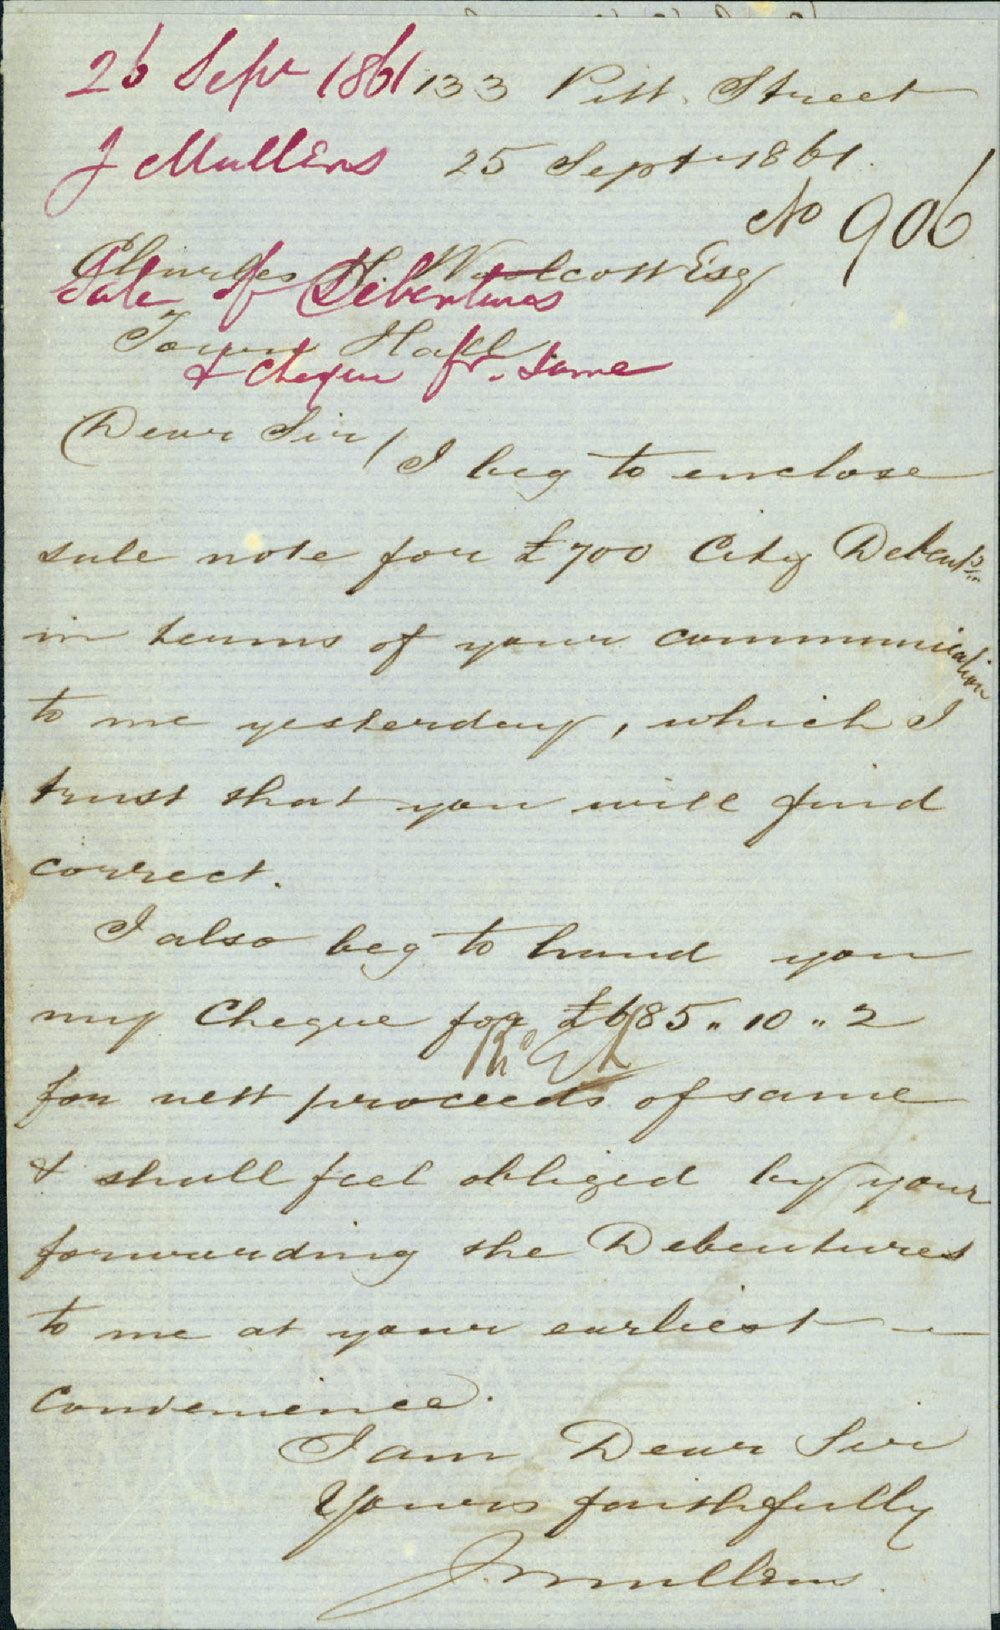 26 Sept 1861
J Mullens
Sale of Debentures
& Cheque for Same
133 Pitt Street
25 Sept 1861.
No 906
Charles H. Woolcott Esq
Town Hall
Dear Sir/
I beg to enclose
sale note for £700 City Debent.
in terms of your communication
to me yesterday, which I
trust that you will find
correct.
I also beg to hand you
my Cheque for £685 " 10 " 2
for nett proceeds of same
& shall feel obliged by your
forwarding the Debentures
to me at your earliest
convenience.
I am Dear Sir
Yours faithfully
J Mullens.